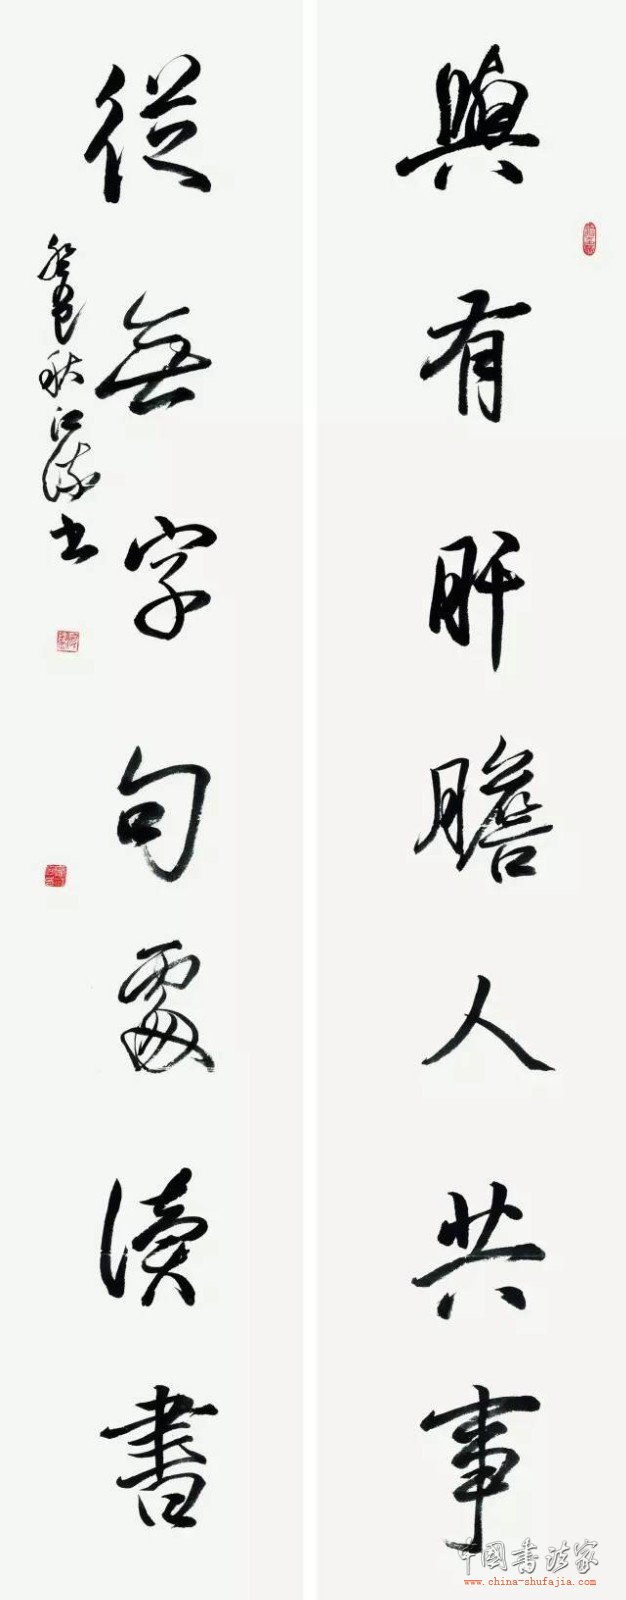 與有肝膽人共事
從無字句處讀書
癸卯秋江源书
中國书法家
www.china-shufajia.com